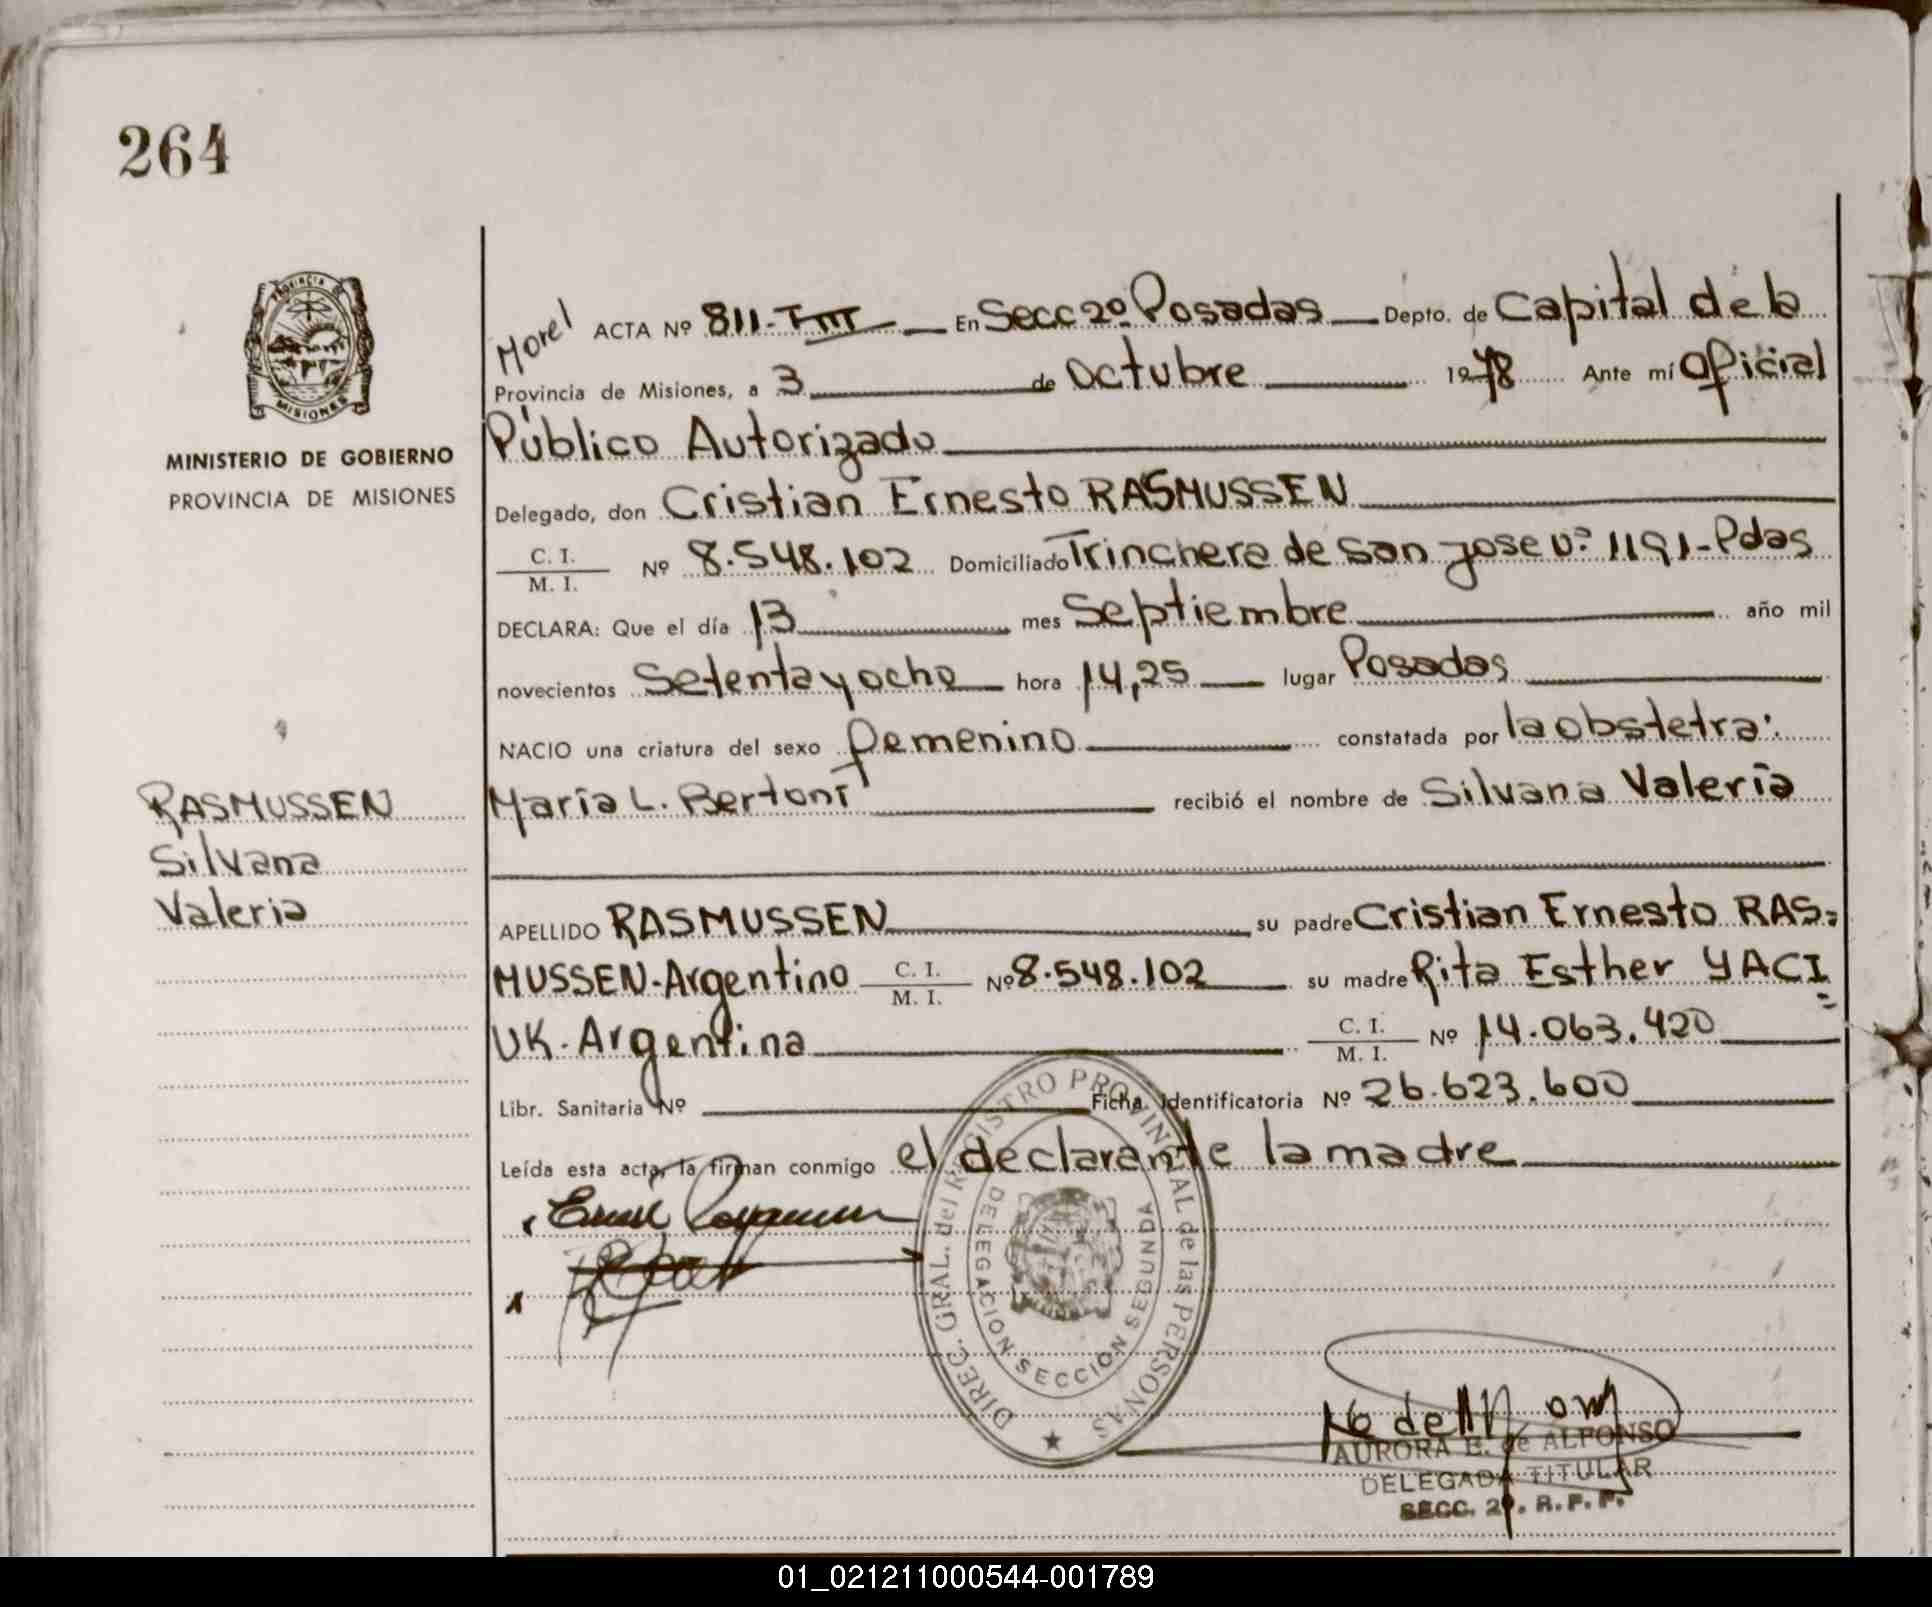 264
PROVINCIA DE
MISIONES
MINISTERIO DE GOBIERNO
PROVINCIA DE MISIONES
RASMUSSEN
Silvana
Valeria
Morel ACTA Nº 811-TIII En Secc 2º Posadas Depto. de Capital de la
Provincia de Misiones, a 3 de Octubre 1978 Ante mí Oficial
Público Autorizado
Delegado, don Cristian Ernesto RASMUSSEN
C. I. / M. I. Nº 8.548.102 Domiciliado Trinchera de San Jose nº 1191-Pdas
DECLARA: Que el día 13 mes Septiembre año mil
novecientos Setenta y ocho hora 14,25 lugar Posadas
NACIO una criatura del sexo femenino constatada por la obstetra:
María L. Bertoni recibió el nombre de Silvana Valería
APELLIDO RASMUSSEN su padre Cristian Ernesto RAS=
MUSSEN-Argentino C. I. / M. I. Nº 8.548.102 su madre Rita Esther YACI=
UK-Argentina C. I. / M. I. Nº 14.063.420
Libr. Sanitaria Nº Ficha Identificatoria Nº 26.623.600
Leída esta acta, la firman conmigo el declarante la madre
DIREC. GRAL. del REGISTRO PROVINCIAL de las PERSONAS
DELEGACION SECCION SEGUNDA
AURORA E. de ALFONSO
DELEGADA TITULAR
SECC. 2º. R. P. P.
01_021211000544-001789